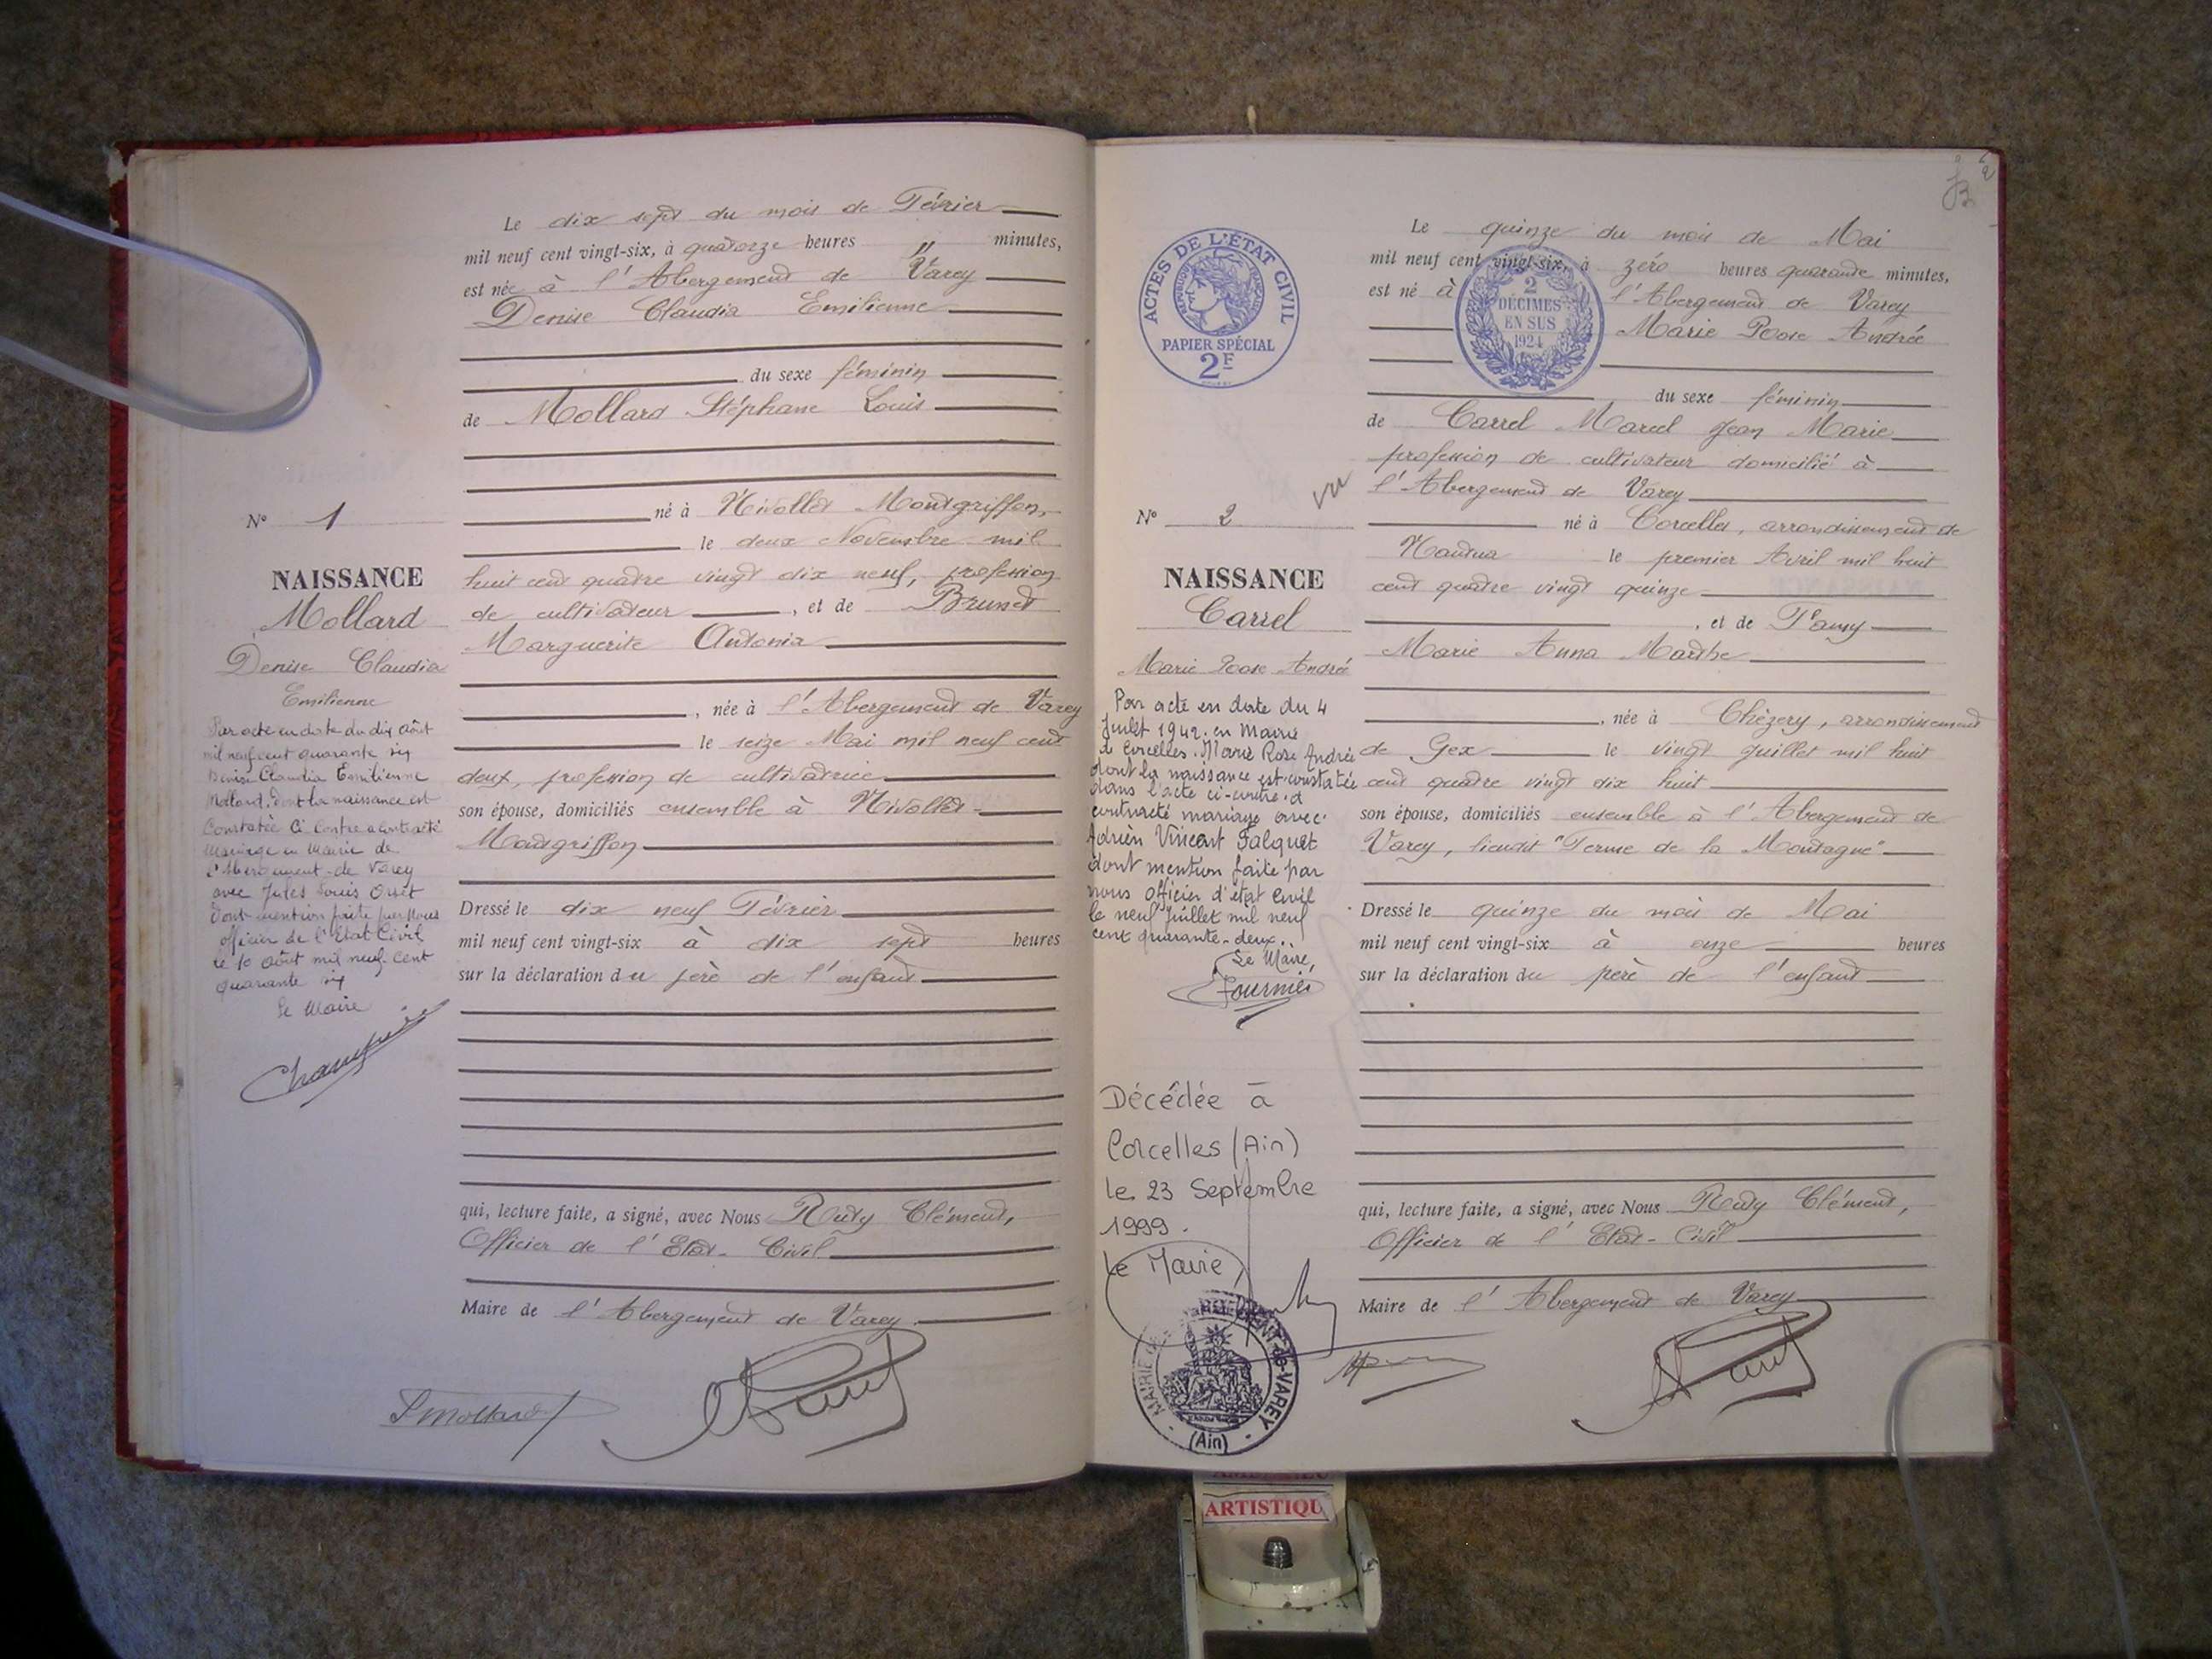 Le dix sept du mois de Février
mil neuf cent vingt-six, à quatorze heures " minutes,
est née à l'Abergement de Varey
Denise Claudia Emilienne
du sexe féminin
de Mollard Stéphane Louis
né à Nivollet Montgriffon,
le deux Novembre mil
huit cent quatre vingt dix neuf, profession
de cultivateur, et de Brunet
Marguerite Antonia
, née à l'Abergement de Varey
le seize Mai mil neuf cent
deux, profession de cultivatrice
son épouse, domiciliés ensemble à Nivollet-
Montgriffon
Dressé le dix neuf Février
mil neuf cent vingt-six à dix sept heures
sur la déclaration du père de l'enfant
qui, lecture faite, a signé, avec Nous Rudy Clément,
Officier de l'Etat-Civil
Maire de l'Abergement de Varey
S Mollard
N° 1
NAISSANCE
Mollard
Denise Claudia
Emilienne
Par acte en date du dix août
mil neuf cent quarante six
Denise Claudia Emilienne
Mollard, dont la naissance est
Constatée Ci Contre a contracté
mariage en Mairie de
l'Abergement-de Varey
avec Jules Louis
Dont mention faite par Nous
officier de l'Etat Civil
le 10 août mil neuf cent
quarante six
Le Maire
ACTES DE L'ÉTAT CIVIL
RÉPUBLIQUE FRANÇAISE
PAPIER SPÉCIAL
2F
2
DÉCIMES
EN SUS
1924
Le quinze du mois de Mai
mil neuf cent vingt-six, à zéro heures quarante minutes,
est né à l'Abergement de Varey
Marie Rose André
du sexe féminin
de Carrel Marcel Jean Marie
profession de cultivateur domicilié à
l'Abergement de Varey
né à Corcelles, arrondissement de
Nantua le premier Avril mil huit
cent quatre vingt quinze
, et de
Marie Anna Marthe
, née à Chézery, arrondissement
de Gex le vingt juillet mil huit
cent quatre vingt dix huit
son épouse, domiciliés ensemble à l'Abergement de
Varey, lieudit "Ferme de la Montagne"
Dressé le quinze du mois de Mai
mil neuf cent vingt-six à onze heures
sur la déclaration du père de l'enfant
qui, lecture faite, a signé, avec Nous Rudy Clément,
Officier de l'Etat-Civil
Maire de l'Abergement de Varey
vu
N° 2
NAISSANCE
Carrel
Marie Rose André
Par acte en date du 4
Juillet 1942. en Mairie
de Corcelles. Marie Rose André
dont la naissance est constatée
dans l'acte ci-contre a
contracté mariage avec
Adrien Vincent Falquet
dont mention faite par
nous Officier d'état Civil
le neuf Juillet mil neuf
cent quarante-deux.
Le Maire,
Fournier
Décédée à
Corcelles (Ain)
le 23 Septembre
1999.
Le Maire,
MAIRIE DE L'ABERGEMENT-de-VAREY
(Ain)
ARTISTIQU